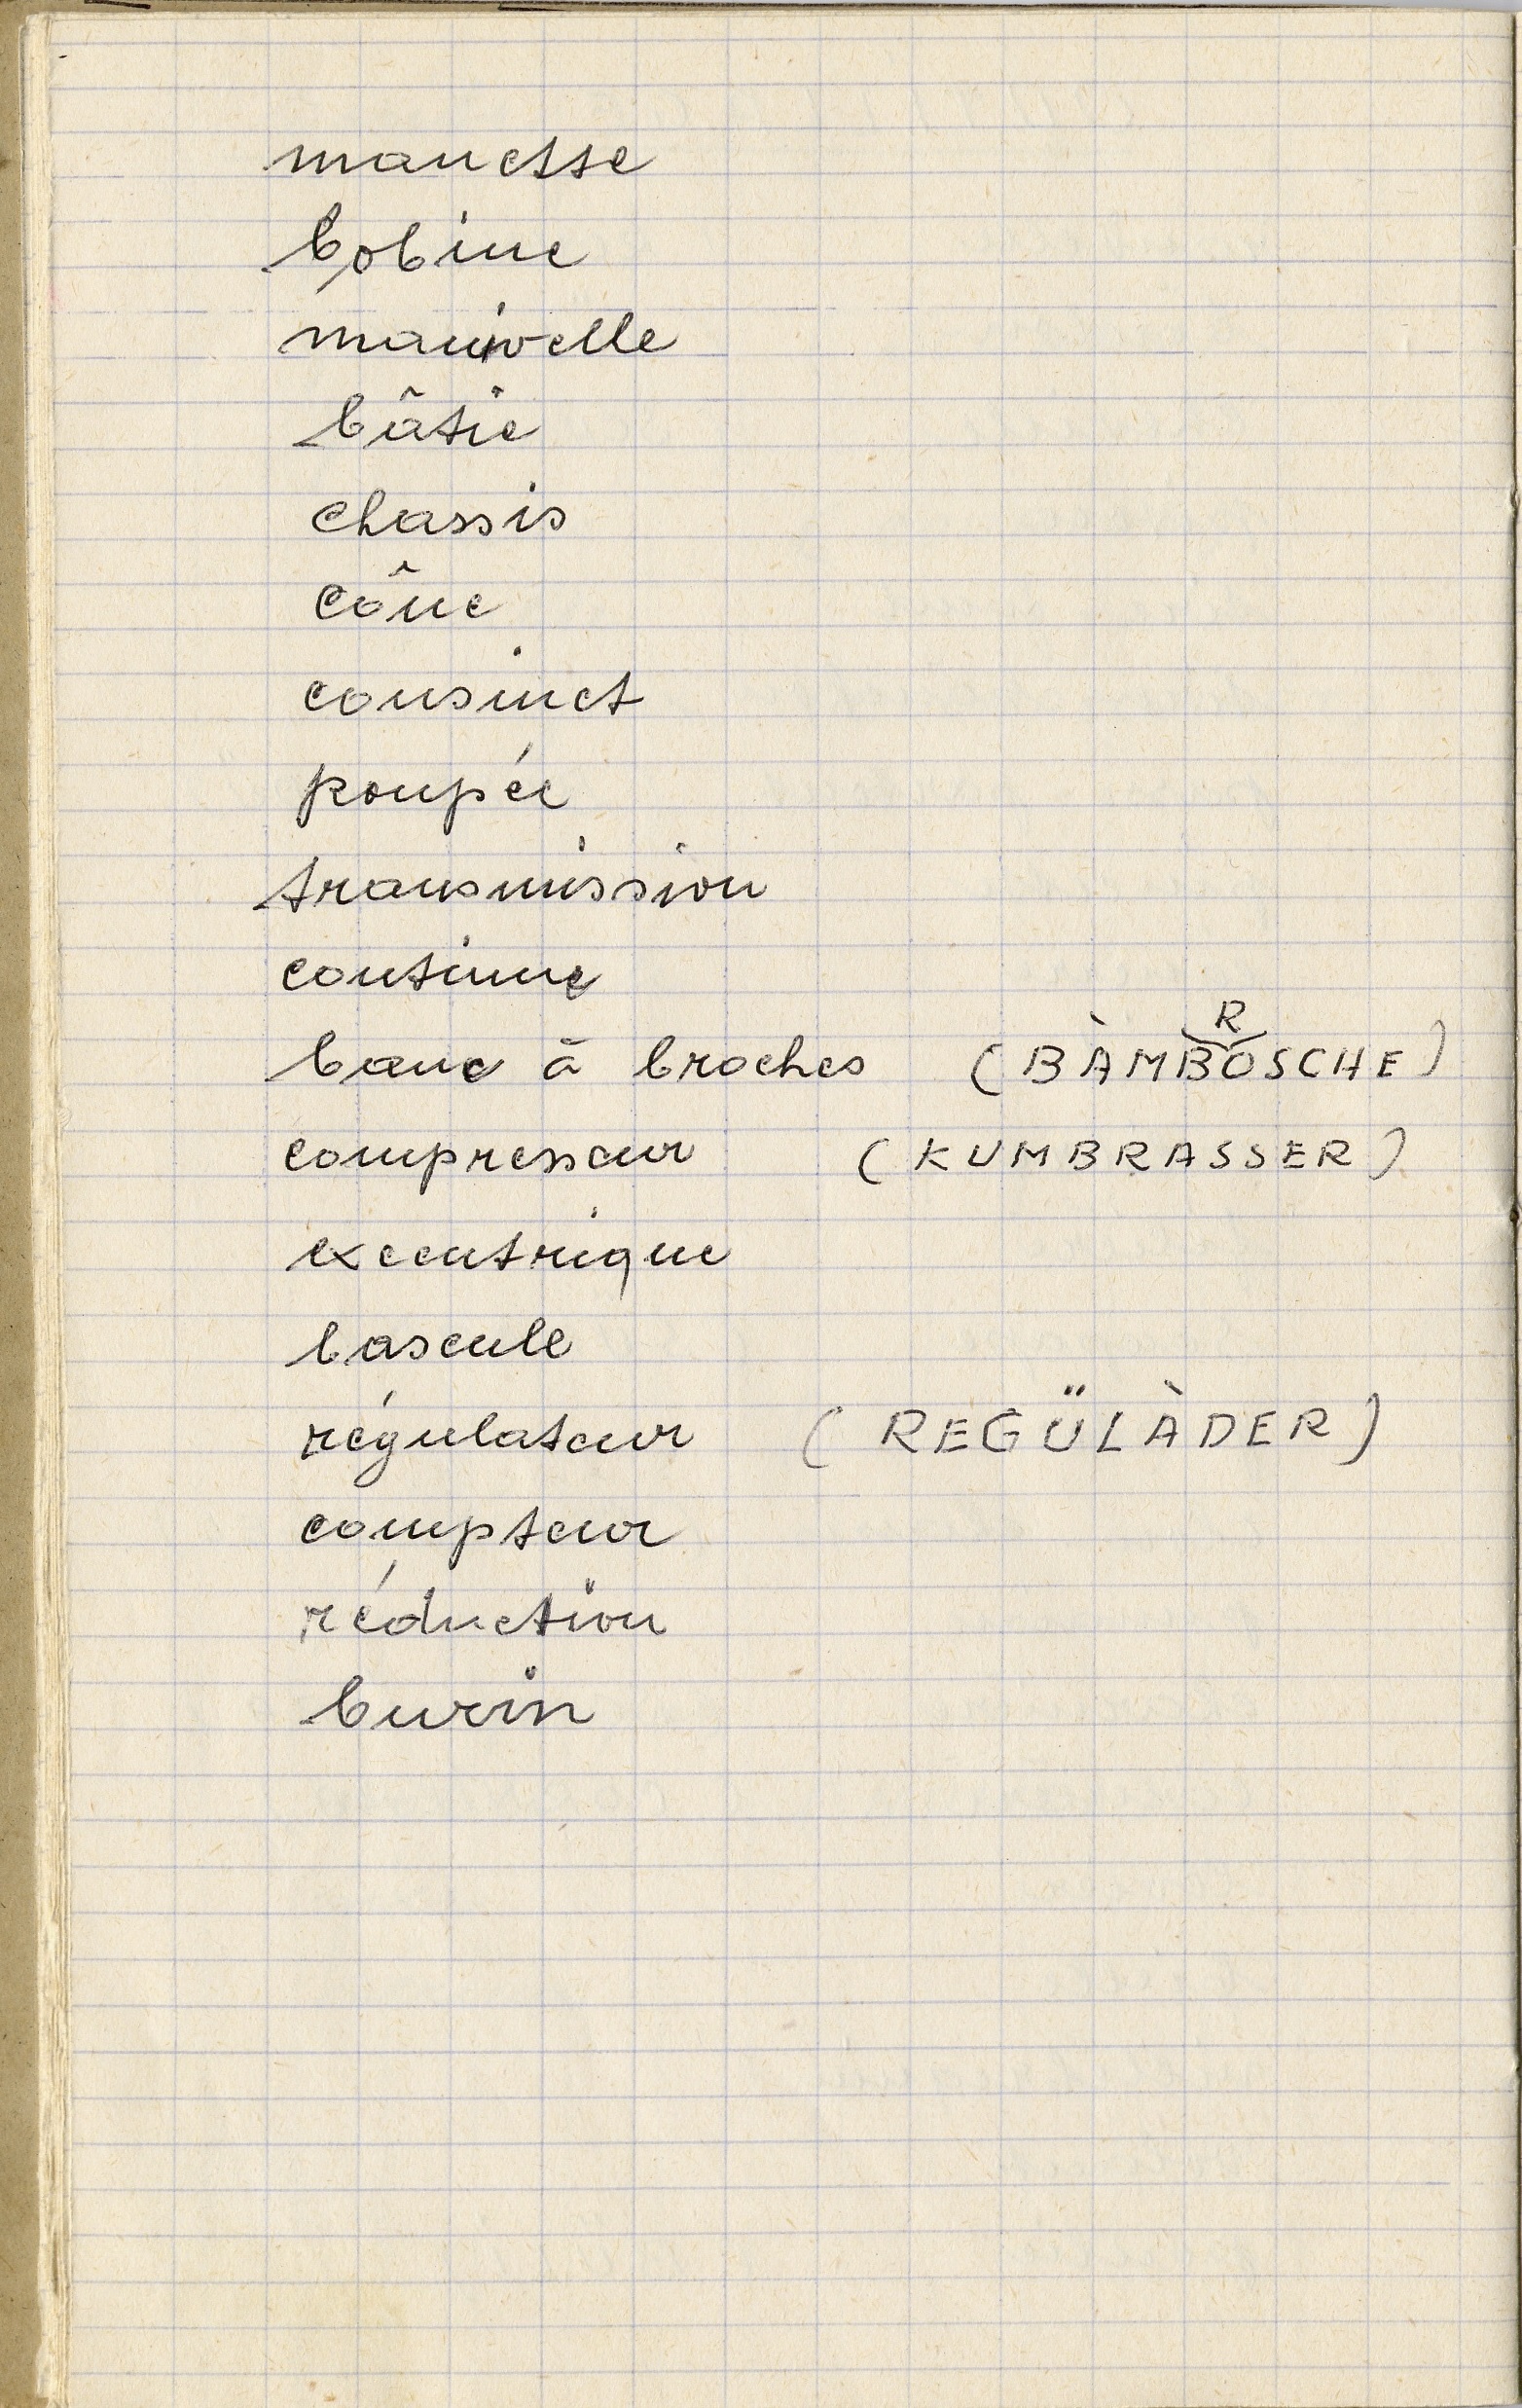 manette
bobine
manivelle
bâtie
chassis
cône
cousinet
poupée
transmission
continue
banc à broches (BÀMBROSCHE)
compresseur (KUMBRASSER)
excentrique
bascule
régulateur (REGÜLÀDER)
compteur
réduction
burin